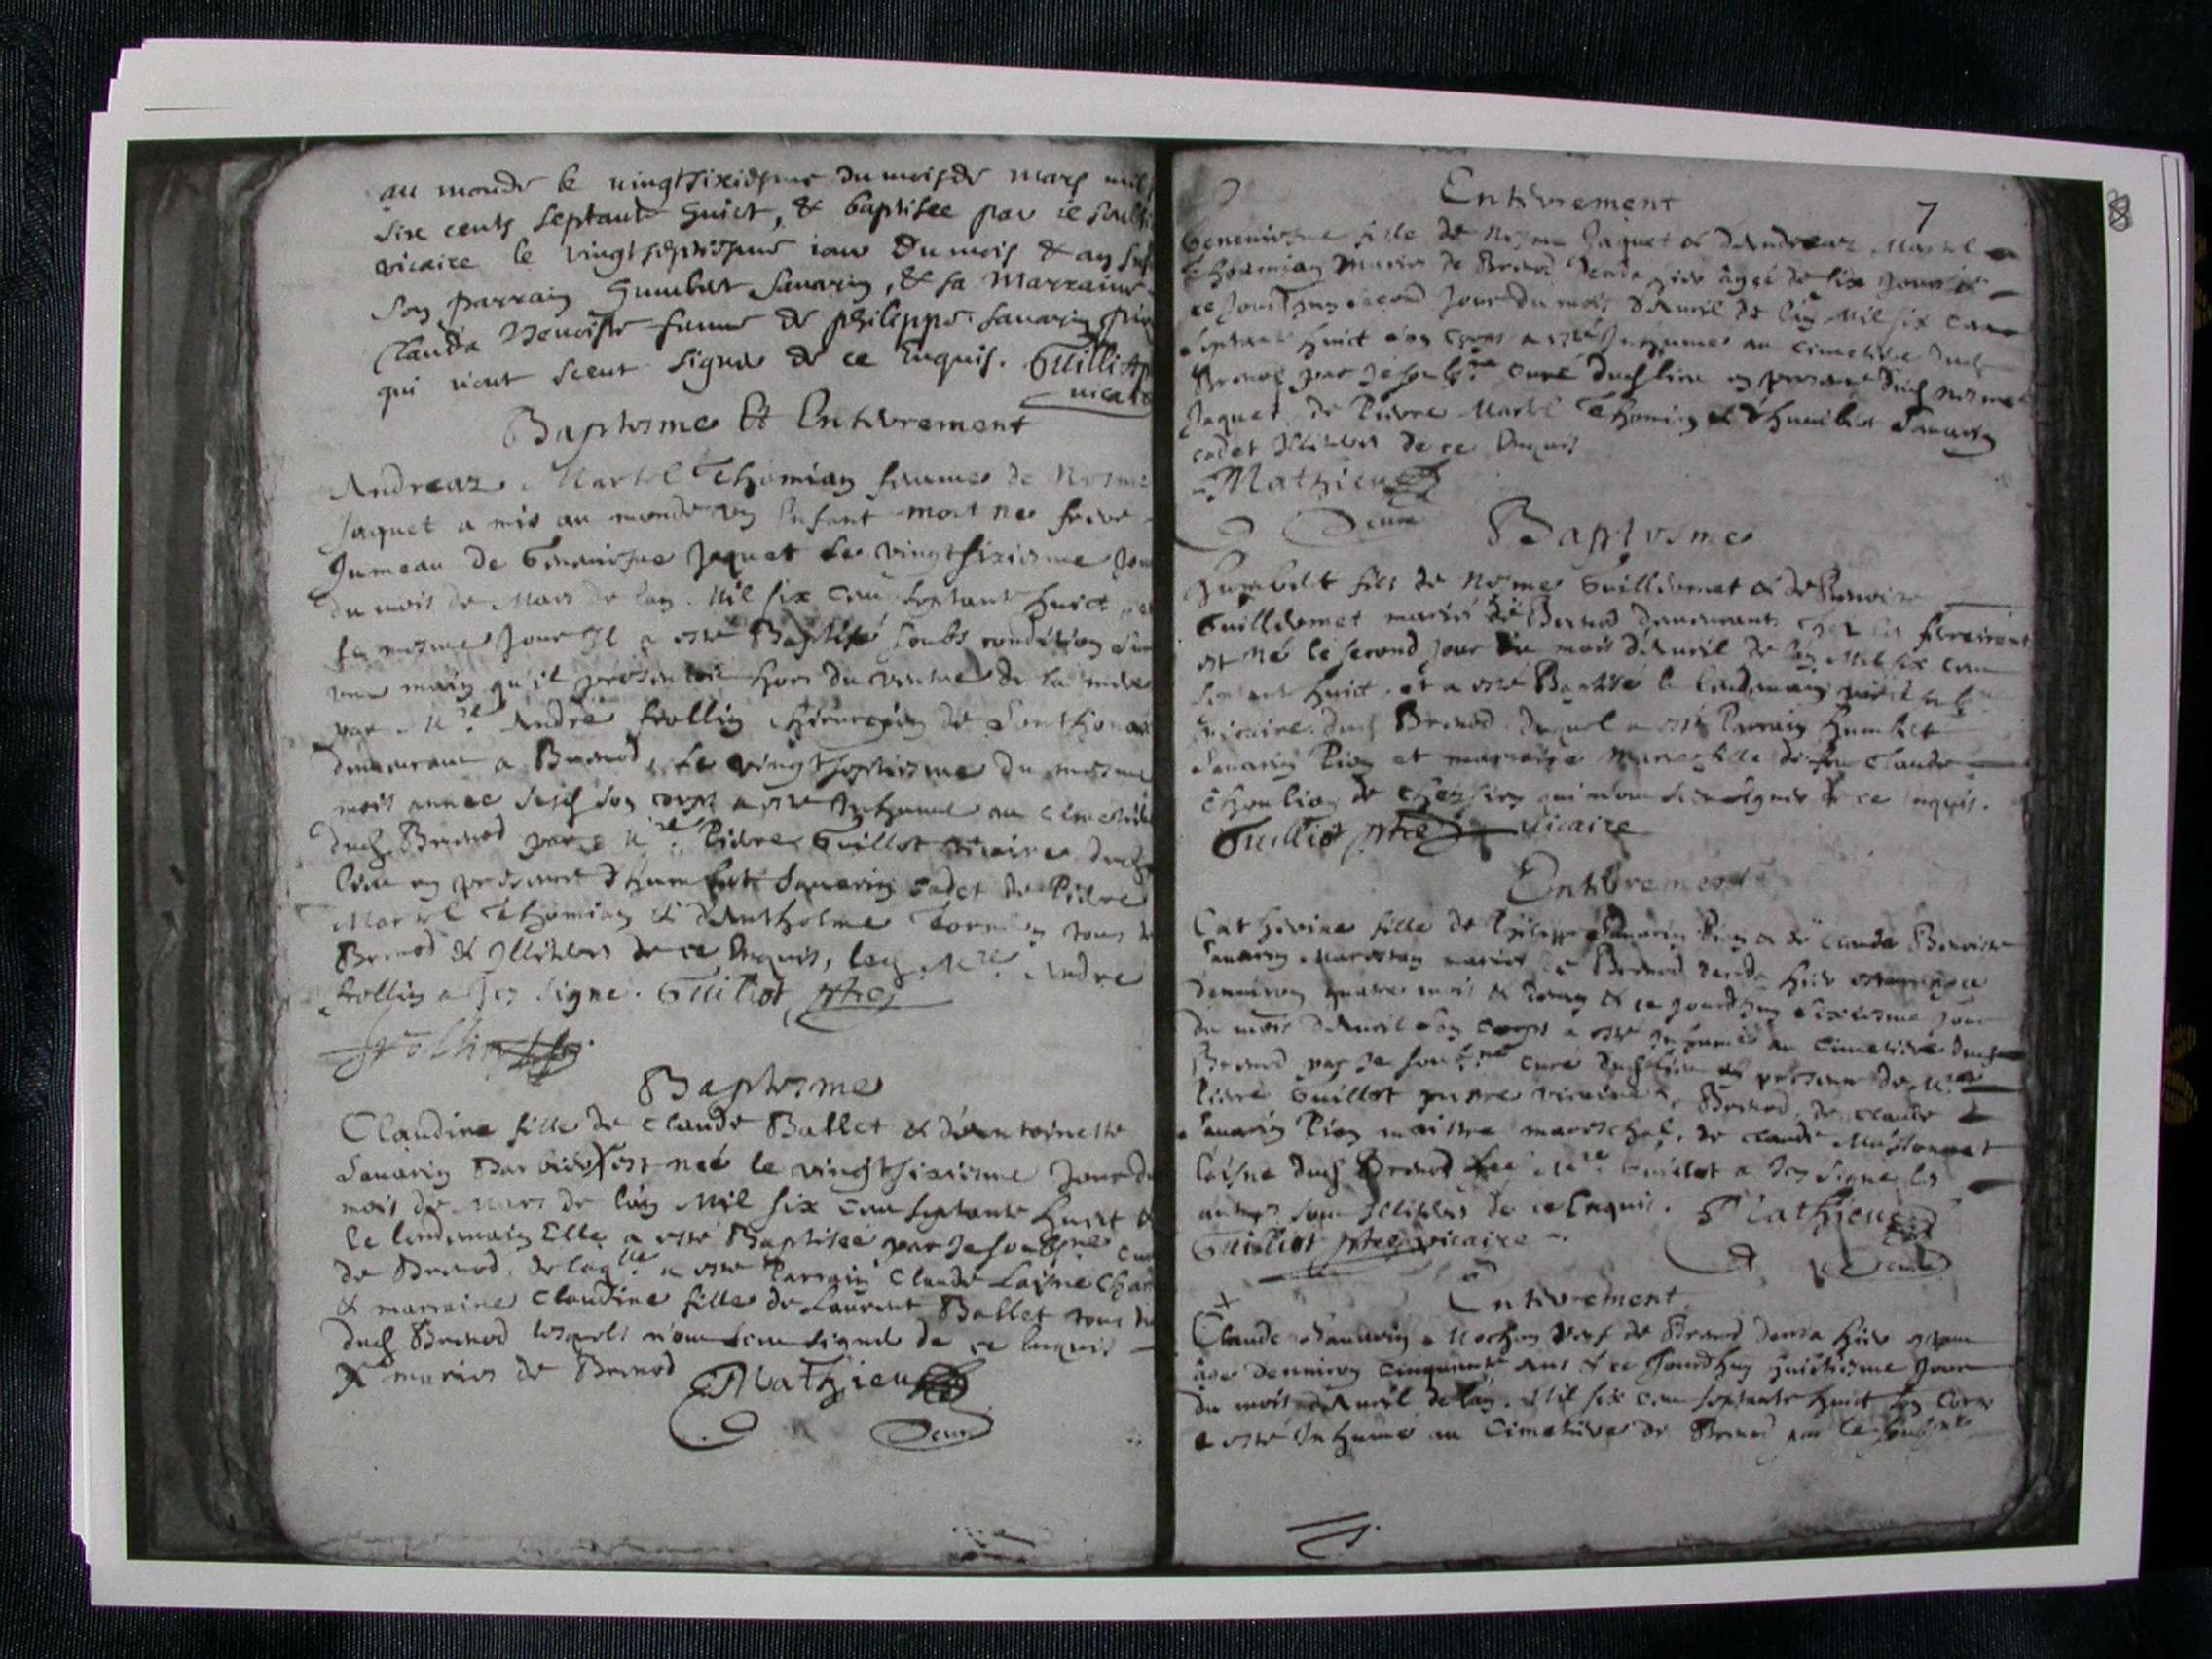 au monde le vingtsixiesme du mois de mars mil
six cents septante huict, & baptisee par ie soubs
vicaire le vingtseptiesme iour du mois & an
son parrain humbert sauarin, & sa marraine
Clauda Benoiste femme de philippe sauarin
qui n'ont sceut signer de ce enquis. Guilliot
vicaire
Baptesme Et Enterrement
Andreaz Martel Thomian femme de Nosme
Jaquet a mis au monde un Enfant mort ne frere
Jumeau de Geneuiesue Jaquet Le vingtsixiesme Jour
du mois de Mars de lan Mil six cent septante huict
le mesme Jour Il a este Baptisé soubs condition sur
une main qu'il presentoit hors du ventre de sa mere
par Mre André frollin chirurgien de
demeurant a Brenod, Le vingtseptiesme du mesme
mois annee son corps a este Inhumé au cimetiere
dud Brenod par Mre Pierre Guillot vicaire dud
lieu en presence d'humbert Sauarin cadet de Pierre
Martel Thomian & d'Anthelme tous de
Brenod & Illiteres de ce Enquis, led Mre André
frollin a Icy signe. Guilliot ptre
frollin
Baptesme
Claudine fille de Claude Ballet & d'Antoinette
Sauarin Barbier X est neé le vingtsixiesme Jour du
mois de Mars de lan Mil six cent septante huict &
le lendemain Elle a este Baptisée par Je soubsne curé
de Brenod, de laqlle a este Parrain Claude Laisne
& marraine Claudine fille de Laurent Ballet tous
dud Brenod lesquels n'ont sceu signer de ce enquis
X mariés de Brenod Mathieu
Curé
7
Enterrement
Geneuiesue fille de Nosme Jaquet & d'Andreaz Martel
Thomian Mariés de Brenod hier âgeé de six Jours &
ce Jourdhuy second Jour du mois d'Auril de lan Mil six cent
septante huict son corps a esté Inhumé au Cimetiere dud
Brenod par Je soubsne curé dud lieu en presence dud nosme
Jaquet, de Pierre Martel Thomian & d'humbert Sauarin
cadet Illiteres de ce Enquis
Mathieu
Curé
Baptesme
Humbert fils de Nosme Guilliomet & de
Guilliomet mariés de Brenod demeurants chez les
est né le second Jour du mois d'Auril de lan Mil six cent
septante huict, et a esté Baptisé le lendemain
vicaire dud Brenod duquel a esté Parrain Humbert
Sauarin Pion et marraine Marie fille de feu Claude
de qui n'ont sceu signer de ce enquis.
Guilliot ptre vicaire
Enterrement
Catherine fille de Philippe Sauarin Pion & de Clauda Benoiste
Sauarin mariés de Brenod hier
d'enuiron quatre mois & & ce Jourdhuy sixiesme Jour
du mois d'Auril son corps a esté Inhumé au Cimetiere dud
Brenod par Je soubsné curé dud lieu en presence de Mre
Pierre Guillot prestre vicaire de Brenod, de Claude
Sauarin Pion maistre mareschal, de Claude
laisne dud Brenod led Mre Guillot a Icy signe les
autres sont Illiteres de ce Enquis. Mathieu
Guilliot ptre vicaire Curé
X Enterrement
Claude Sauarin de Brenod hier
âgé d'enuiron cinquante Ans & ce Jourdhuy huictiesme Jour
du mois d'Auril de lan Mil six cent septante huict son Corps
a este Inhumé au Cimetiere de Brenod par le soubsné